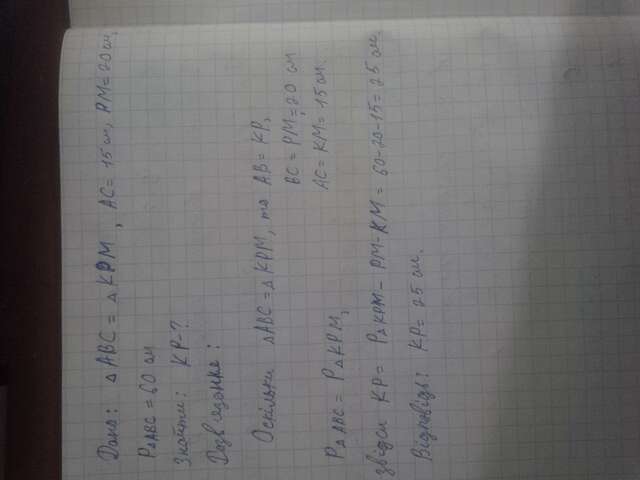 Дано: △ABC = △KPM, AC = 15 см, PM = 20 см,
P△ABC = 60 см
Знайти: KP-?
Розв'язання:
Оскільки △ABC = △KPM, то AB = KP,
BC = PM = 20 см
AC = KM = 15 см.
P△ABC = P△KPM,
звідси KP = P△KPM - PM - KM = 60-20-15 = 25 см.
Відповідь: KP = 25 см.